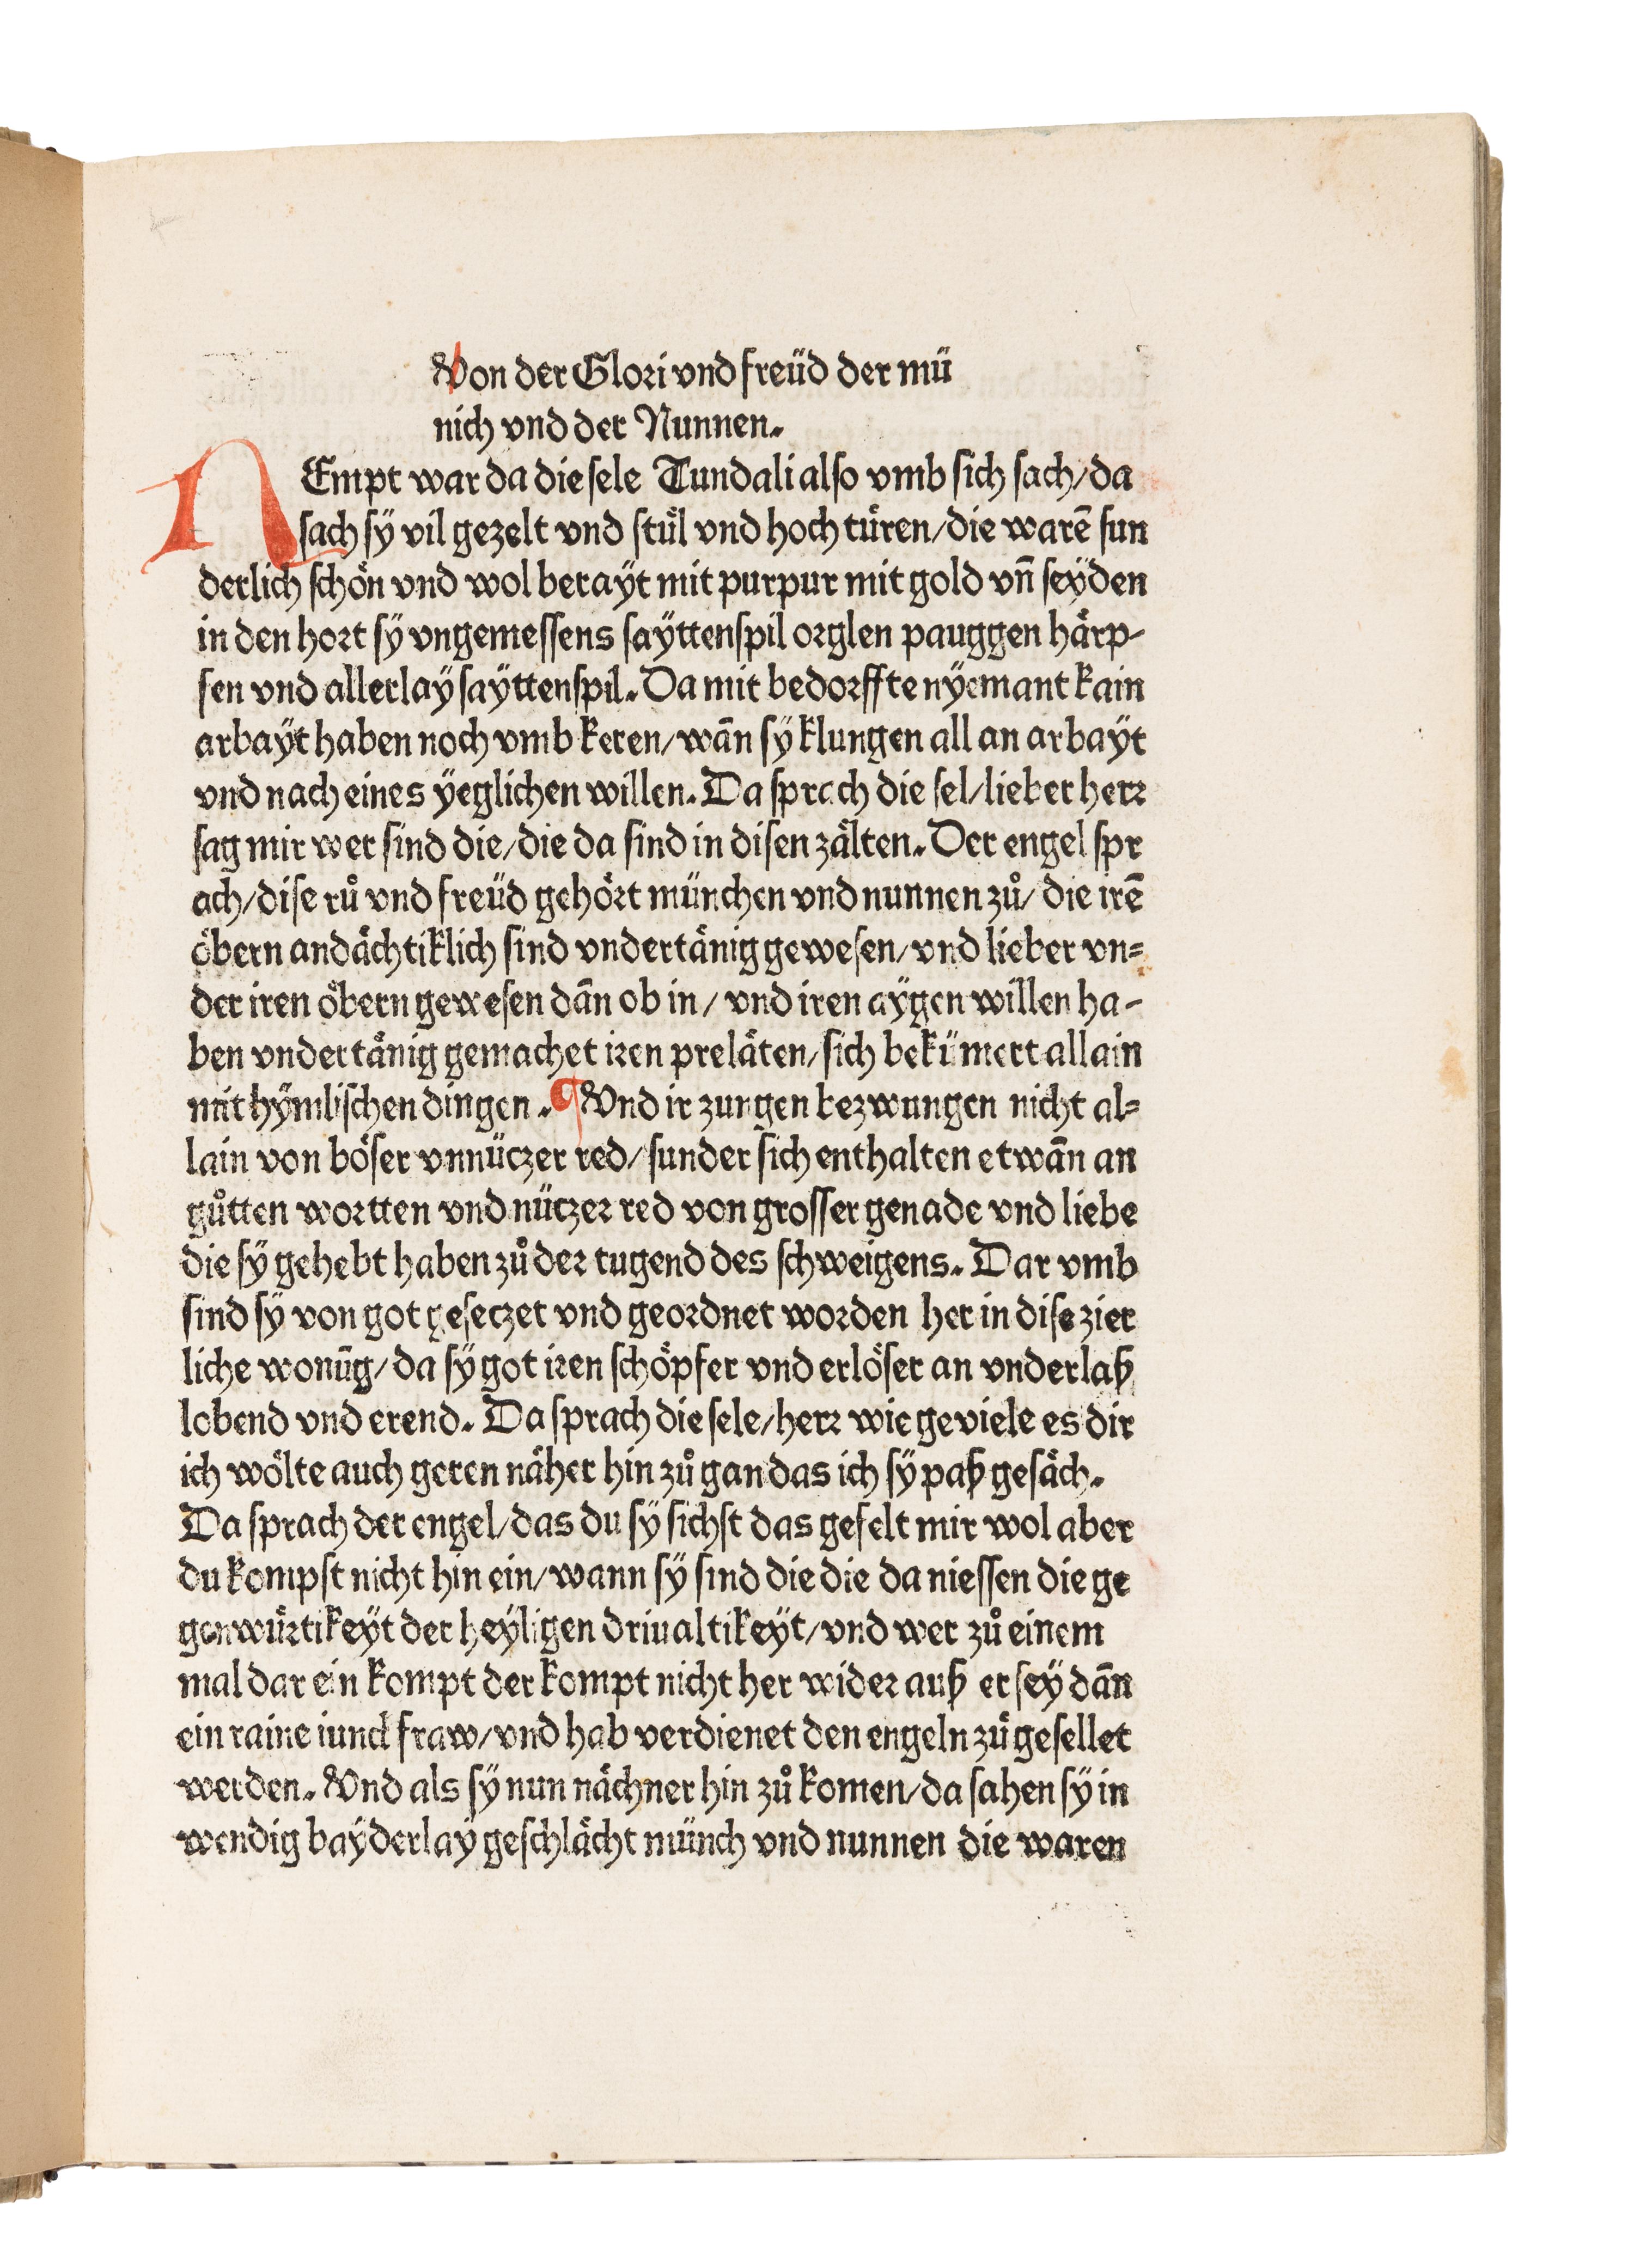 Von der Glori vnd freüd der mü
nich vnd der Nunnen.
NEmpt war da die sele Tundali also vmb sich sach/da
sach sÿ vil gezelt vnd stůl vnd hoch türen/die warē sun
derlich schön vnd wol berayt mit purpur mit gold vn̄ seÿden
in den hort sÿ vngemessens sayttenspil orglen pauggen härp-
sen vnd allerlaÿ saÿttenspil. Da mit bedorffte nÿemant kain
arbaÿt haben noch vmb keren/wān sÿ klungen all an arbaÿt
vnd nach eines ÿeglichen willen. Da sprach die sel/lieber herr
sag mir wer sind die/die da sind in disen zälten. Der engel spr
ach/dise rů vnd freüd gehört münchen vnd nunnen zů/ die irē
öbern andächtiklich sind vndertänig gewesen/vnd lieber vn=
der iren öbern gewesen dān ob in/ vnd iren aÿgen willen ha-
ben vndertänig gemachet iren preläten/sich bekümert allain
mit hÿmlischen dingen. ¶Vnd ir zungen bezwungen nicht al=
lain von böser vnnüczer red/sunder sich enthalten etwān an
gůtten wortten vnd nüczer red von grosser genade vnd liebe
die sÿ gehebt haben zů der tugend des schweigens. Dar vmb
sind sÿ von got geseczet vnd geordnet worden her in dise zier
liche wonūg/da sÿ got iren schöpfer vnd erlöser an vnderlaß
lobend vnd erend. Da sprach die sele/herr wie geviele es dir
ich wölte auch geren näher hin zů gan das ich sÿ paß gesäch.
Da sprach der engel/das du sÿ sichst das gefelt mir wol aber
du kompst nicht hin ein/wann sÿ sind die die da niessen die ge
genwürtikeÿt der heÿligen driualtikeÿt/vnd wer zů einem
mal dar ein kompt der kompt nicht her wider auß er seÿ dān
ein raine iunckfraw/vnd hab verdienet den engeln zů gesellet
werden. Vnd als sÿ nun nächner hin zů komen/da sahen sÿ in
wendig baÿderlaÿ geschlächt münch vnd nunnen die waren